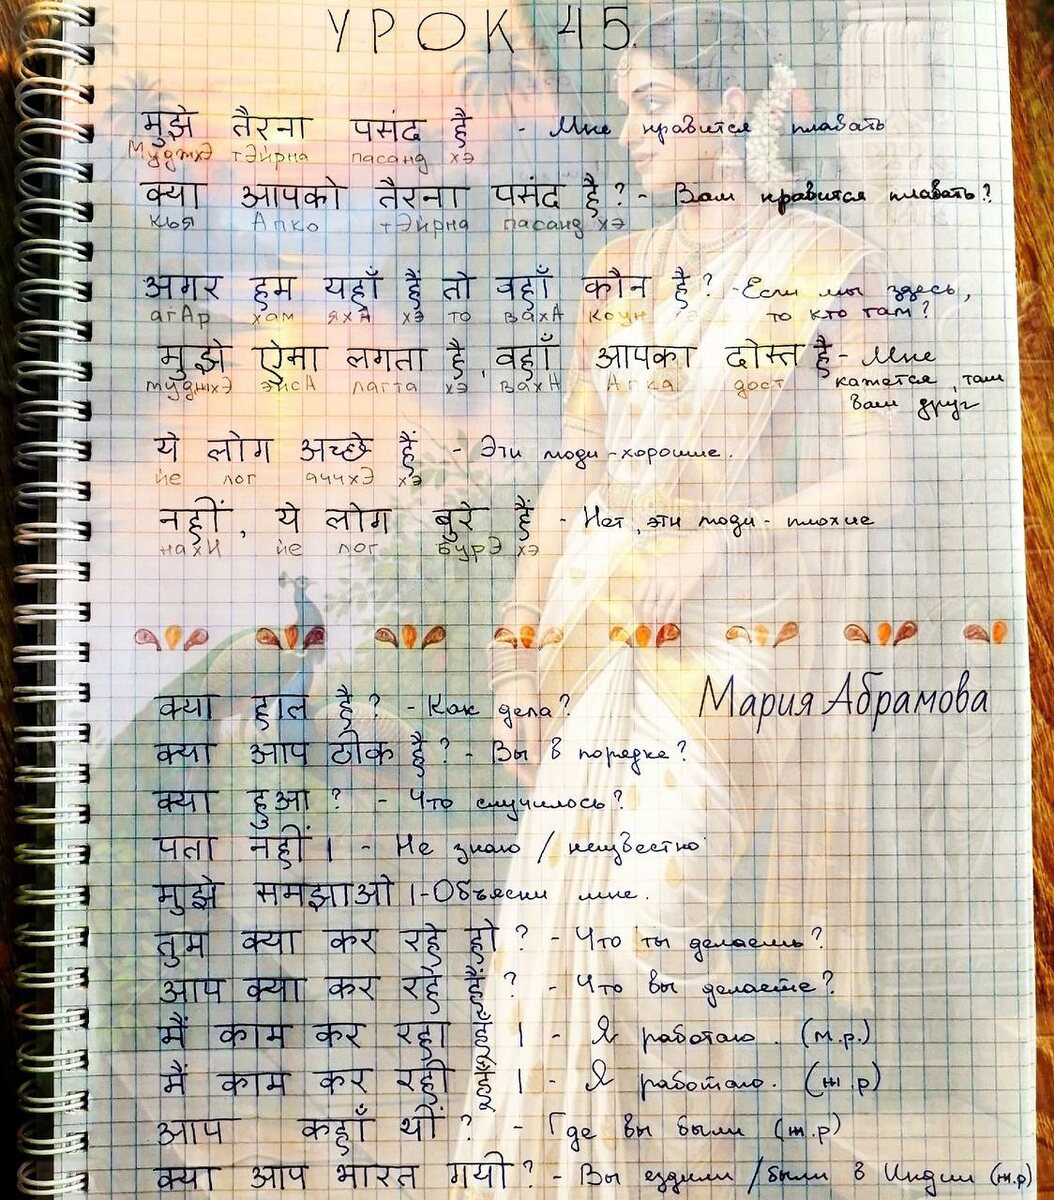 УРОК 45.
मुझे तैरना पसंद है - Мне нравится плавать
МуджхЭ тЭйрна пасанд хэ
क्या आपको तैरना पसंद है? - Вам нравится плавать?
кья Апко тЭйрна пасанд хэ
अगर हम यहाँ हैं तो वहाँ कौन है? - Если мы здесь,
агАр хам яхА хэ то вахА коун то кто там?
मुझे ऐसा लगता है, वहाँ आपका दोस्त है - Мне
муджхЭ эйсА лагта хэ вахА Апка дост кажется, там
ваш друг
ये लोग अच्छे हैं - Эти люди - хорошие.
йе лог аччхЭ хэ
नहीं, ये लोग बुरे हैं - Нет, эти люди - плохие
нахИ йе лог бурЭ хэ
Мария Абрамова
क्या हाल है? - Как дела?
क्या आप ठीक हैं? - Вы в порядке?
क्या हुआ? - Что случилось?
पता नहीं। - Не знаю / неизвестно
मुझे समझाओ। - Объясни мне.
तुम क्या कर रहे हो? - Что ты делаешь?
आप क्या कर रहे हैं? - Что вы делаете?
मैं काम कर रहा हूँ। - Я работаю. (м.р.)
मैं काम कर रही हूँ। - Я работаю. (ж.р)
आप कहाँ थीं? - Где вы были (ж.р)
क्या आप भारत गयी? - Вы ездили / были в Индии (ж.р)